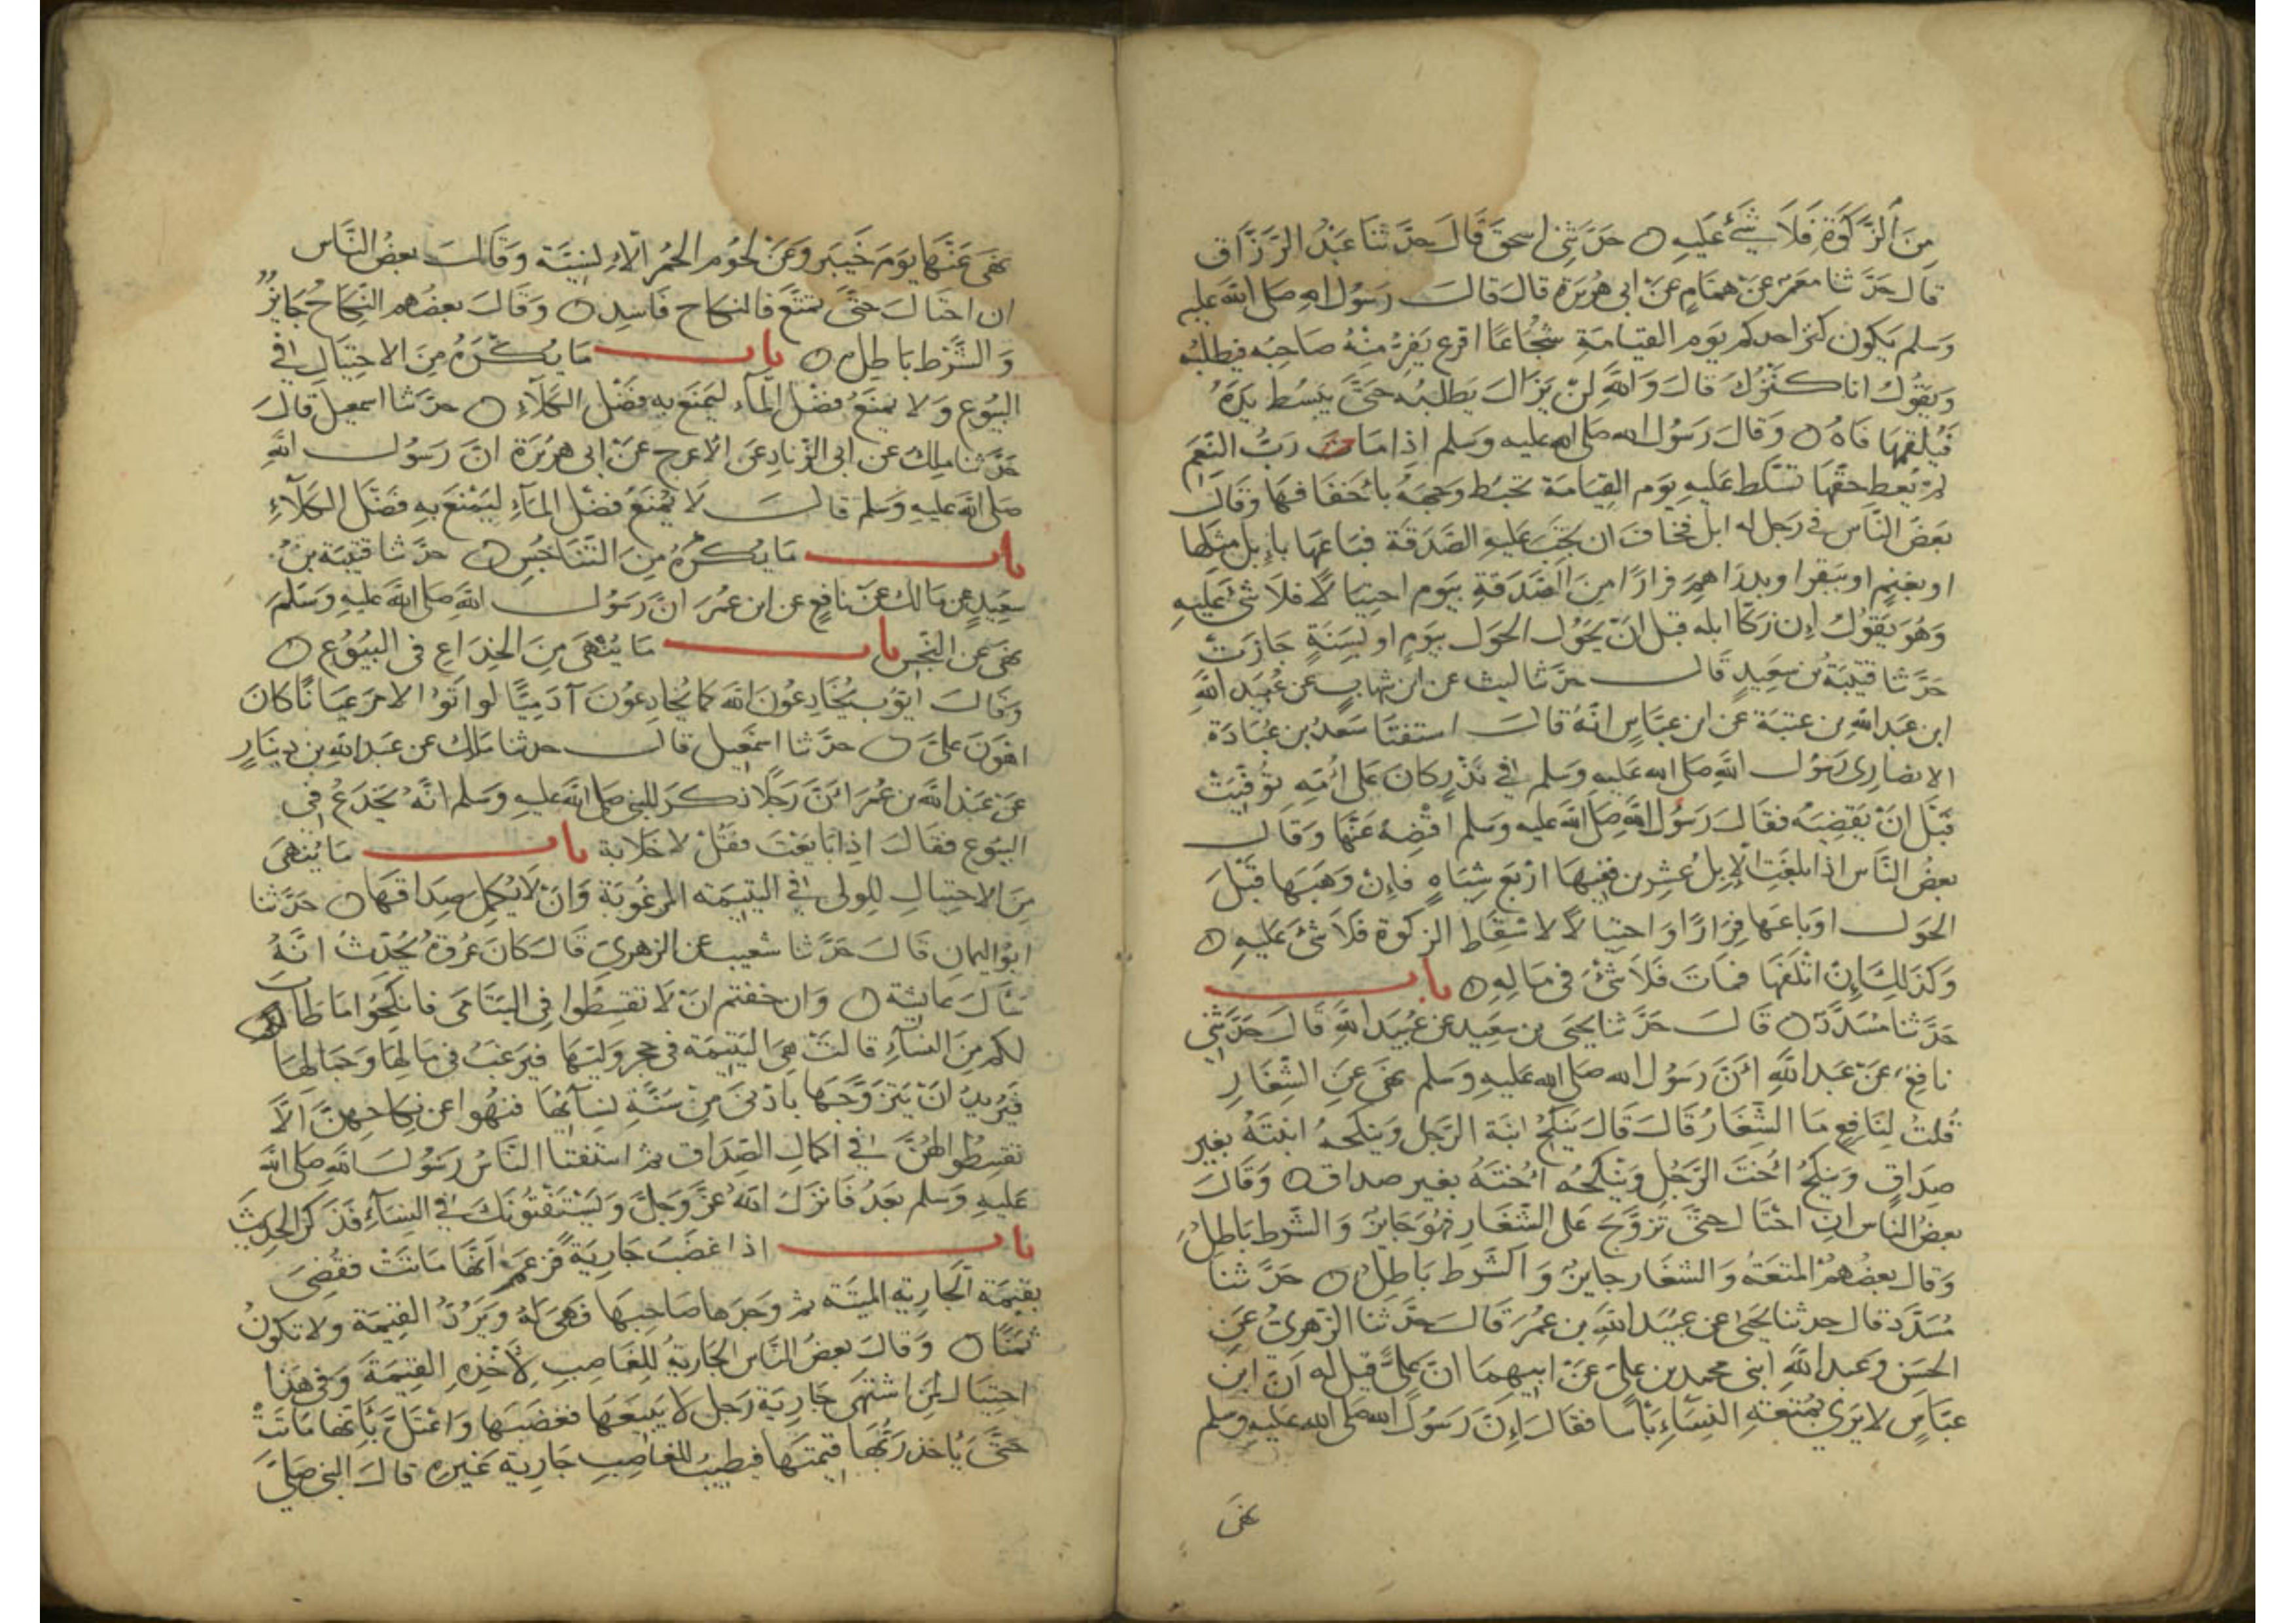 من الزكوة فلا شئ عليه ه حدثني اسحق قال حدثنا عبد الرزاق
قال حدثنا معمر عن همام عن ابى هريرة قال قال رسول الله صلى الله عليه
وسلم يكون كنز احدكم يوم القيامة شجاعا اقرع يفر منه صاحبه فيطلبه
ويقول انا كنزك قال والله لن يزال يطلبه حتى يبسط يده
فيلقمها فاه ه وقال رسول الله صلى الله عليه وسلم اذا ما رب النعم
لم يعط حقها تسلط عليه يوم القيامة تخبط وجهه باخفافها وقال
بعض الناس في رجل له ابل فخاف ان تجب عليه الصدقة فباعها بابل مثلها
او بغنم او ببقر او بدراهم فرارا من الصدقة بيوم احتيالا فلا شئ عليه
وهو يقول ان زكا ابله قبل ان يحول الحول بيوم او بسنة جازت
حدثنا قتيبة بن سعيد قال حدثنا ليث عن ابن شهاب عن عبيد الله
ابن عبد الله بن عتبة عن ابن عباس انه قال استفتا سعد بن عبادة
الانصارى رسول الله صلى الله عليه وسلم في نذر كان على امه توفيت
قبل ان يقضيه فقال رسول الله صلى الله عليه وسلم اقضه عنها وقال
بعض الناس اذا بلغت الابل عشرين ففيها اربع شياه فإن وهبها قبل
الحول او باعها فرارا واحتيالا لاسقاط الزكوة فلا شئ عليه ه
وكذلك إن اتلفها فمات فلا شئ في ماله ه باب
حدثنا مسدد ه قال حدثنا يحيى بن سعيد عن عبيد الله قال حدثني
نافع عن عبد الله أن رسول الله صلى الله عليه وسلم نهى عن الشغار
قلت لنافع ما الشغار قال قال ينكح ابنة الرجل وينكحه ابنته بغير
صداق وينكح اخت الرجل وينكحه اخته بغير صداق ه وقال
بعض الناس ان احتال حتى تزوج على الشغار فهو جايز والشرط باطل
وقال بعضهم المتعة والشغار جايز والشرط باطل ه حدثنا
مسدد قال حدثنا يحيى عن عبيد الله بن عمر قال حدثنا الزهرى عن
الحسن وعبد الله ابنى محمد بن على عن ابيهما ان على قيل له ان ابن
عباس لا يرى بمتعة النساء بأسا فقال إن رسول الله صلى الله عليه وسلم
نهى
نهى عنها يوم خيبر وعن لحوم الحمر الانسية وقال بعض الناس
ان احتال حتى تمتع فالنكاح فاسد ه وقال بعضهم النكاح جايز
والشرط باطل ه باب ما يكره من الاحتيال في
البيوع ولا يمنع فضل الماء ليمنع به فضل الكلاء ه حدثنا اسمعيل قال
حدثنا ملك عن ابى الزناد عن الاعرج عن ابى هريرة ان رسول الله
صلى الله عليه وسلم قال لا يمنع فضل الماء ليمنع به فضل الكلاء
باب ما يكره من التناجش ه حدثنا قتيبة بن
سعيد عن مالك عن نافع عن ابن عمر ان رسول الله صلى الله عليه وسلم
نهى عن النجش باب ما ينهى من الخداع في البيوع ه
وقال ايوب يخادعون الله كما يخادعون آدميا لو اتوا الامر عيانا كان
اهون على ه حدثنا اسمعيل قال حدثنا ملك عن عبد الله بن دينار
عن عبد الله بن عمر أن رجلا ذكر للنبى صلى الله عليه وسلم انه يخدع في
البيوع فقال اذا بايعت فقل لا خلابة باب ما ينهى
من الاحتيال للولى في اليتيمة المرغوبة وان لا يكمل صداقها ه حدثنا
ابو اليمان قال حدثنا شعيب عن الزهرى قال كان عروة يحدث انه
سال عايشة ه وان خفتم ان لا تقسطوا في اليتامى فانكحوا ما طاب
لكم من النساء قالت هى اليتيمة في حجر وليها فيرغب في مالها وجمالها
فيريد ان يتزوجها بادنى من سنة نسآئها فنهوا عن نكاحهن الا
تقسطوا لهن في اكمال الصداق ثم استفتا الناس رسول الله صلى الله
عليه وسلم بعد فانزل الله عز وجل ويستفتونك في النساء فذكر الحديث
باب اذا غضب جارية فزعم انها ماتت فقضى
بقيمة الجارية الميتة ثم وجدها صاحبها فهى له ويرد القيمة ولا تكون
ثمنا ه وقال بعض الناس الجارية للغاصب لأخذه القيمة وفي هذا
احتيال لمن اشتهى جارية رجل لا يبيعها فغضبها واعتل بأنها ماتت
حتى يأخذ ربها قيمتها فيطيب للغاصب جارية غيره قال النبى صلى